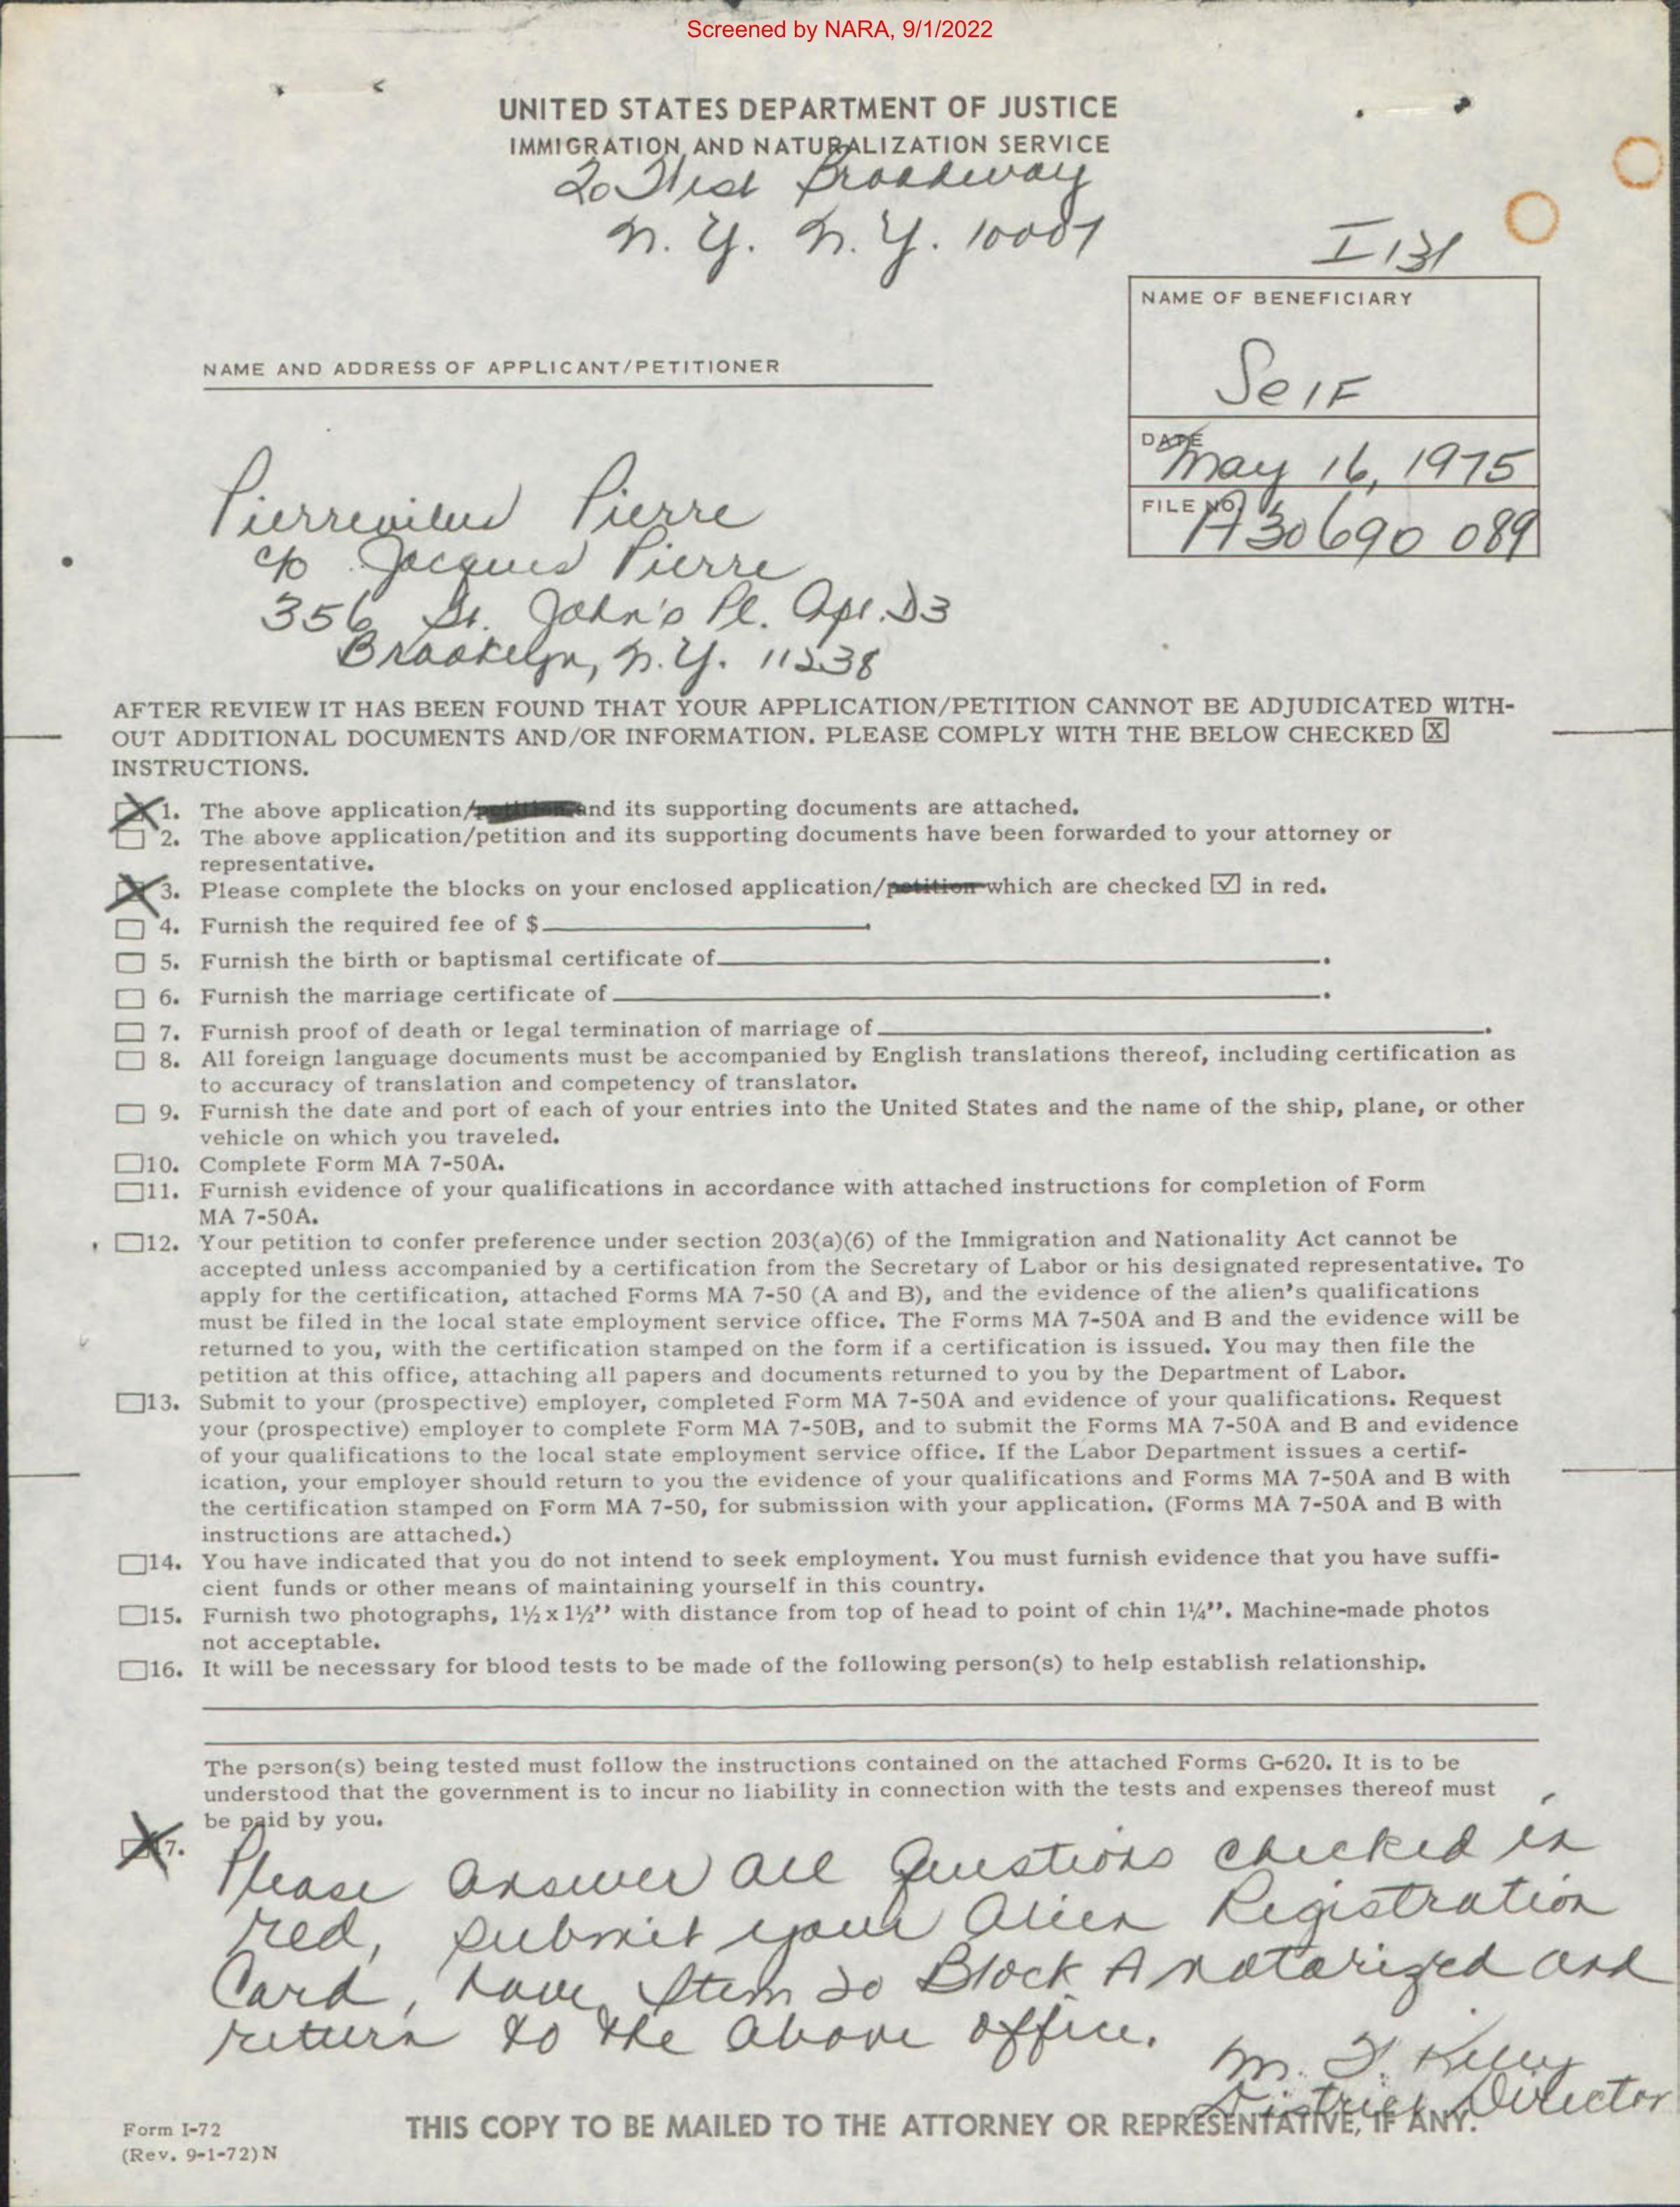 Screened by NARA, 9/1/2022
UNITED STATES DEPARTMENT OF JUSTICE
IMMIGRATION AND NATURALIZATION SERVICE
20 West Broadway
N. Y. N. Y. 10007
I 131
NAME OF BENEFICIARY
Self
NAME AND ADDRESS OF APPLICANT/PETITIONER
DATE
May 16, 1975
FILE NO.
A30 690 089
Pierrevilus Pierre
c/o Jacques Pierre
356 St. John's Pl. Apt. D3
Brooklyn, N.Y. 11238
AFTER REVIEW IT HAS BEEN FOUND THAT YOUR APPLICATION/PETITION CANNOT BE ADJUDICATED WITH-
OUT ADDITIONAL DOCUMENTS AND/OR INFORMATION. PLEASE COMPLY WITH THE BELOW CHECKED X
INSTRUCTIONS.
1. The above application/petition and its supporting documents are attached.
2. The above application/petition and its supporting documents have been forwarded to your attorney or
representative.
3. Please complete the blocks on your enclosed application/petition which are checked ✓ in red.
4. Furnish the required fee of $ .
5. Furnish the birth or baptismal certificate of .
6. Furnish the marriage certificate of .
7. Furnish proof of death or legal termination of marriage of .
8. All foreign language documents must be accompanied by English translations thereof, including certification as
to accuracy of translation and competency of translator.
9. Furnish the date and port of each of your entries into the United States and the name of the ship, plane, or other
vehicle on which you traveled.
10. Complete Form MA 7-50A.
11. Furnish evidence of your qualifications in accordance with attached instructions for completion of Form
MA 7-50A.
12. Your petition to confer preference under section 203(a)(6) of the Immigration and Nationality Act cannot be
accepted unless accompanied by a certification from the Secretary of Labor or his designated representative. To
apply for the certification, attached Forms MA 7-50 (A and B), and the evidence of the alien's qualifications
must be filed in the local state employment service office. The Forms MA 7-50A and B and the evidence will be
returned to you, with the certification stamped on the form if a certification is issued. You may then file the
petition at this office, attaching all papers and documents returned to you by the Department of Labor.
13. Submit to your (prospective) employer, completed Form MA 7-50A and evidence of your qualifications. Request
your (prospective) employer to complete Form MA 7-50B, and to submit the Forms MA 7-50A and B and evidence
of your qualifications to the local state employment service office. If the Labor Department issues a certif-
ication, your employer should return to you the evidence of your qualifications and Forms MA 7-50A and B with
the certification stamped on Form MA 7-50, for submission with your application. (Forms MA 7-50A and B with
instructions are attached.)
14. You have indicated that you do not intend to seek employment. You must furnish evidence that you have suffi-
cient funds or other means of maintaining yourself in this country.
15. Furnish two photographs, 1½ x 1½" with distance from top of head to point of chin 1¼". Machine-made photos
not acceptable.
16. It will be necessary for blood tests to be made of the following person(s) to help establish relationship.
The person(s) being tested must follow the instructions contained on the attached Forms G-620. It is to be
understood that the government is to incur no liability in connection with the tests and expenses thereof must
be paid by you.
17.
Please answer all questions checked in
red, submit your Alien Registration
Card, have item 20 Block A notarized and
return to the above office.
M. F. Kelly
District Director
Form I-72
(Rev. 9-1-72)N
THIS COPY TO BE MAILED TO THE ATTORNEY OR REPRESENTATIVE, IF ANY.